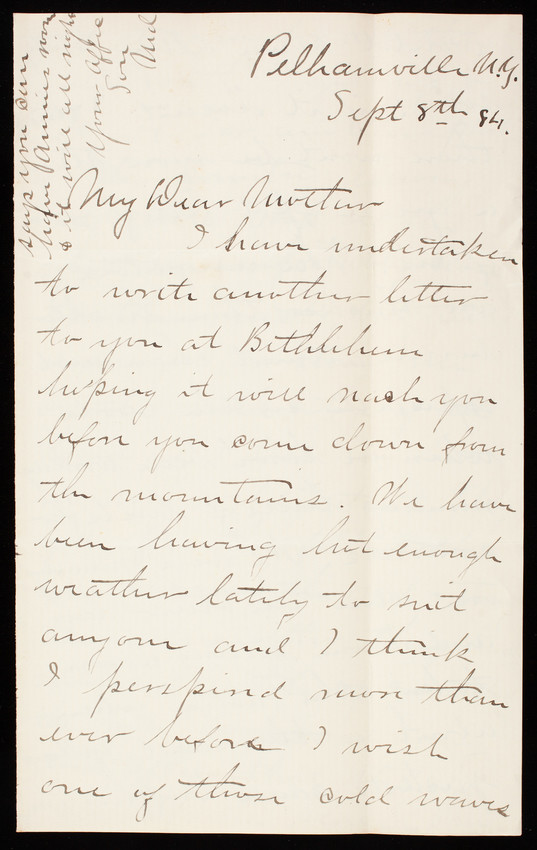 Pelhamville N.Y.
Sept 8th 84.
My Dear Mother
I have undertaken
to write another letter
to you at Bethlehem
hoping it will reach you
before you come down from
the mountains. We have
been having hot enough
weather lately to suit
anyone and I think
I perspired more than
ever before I wish
one of those cold waves
says you can
have Annies room
& it will all right
Your Affec
Son